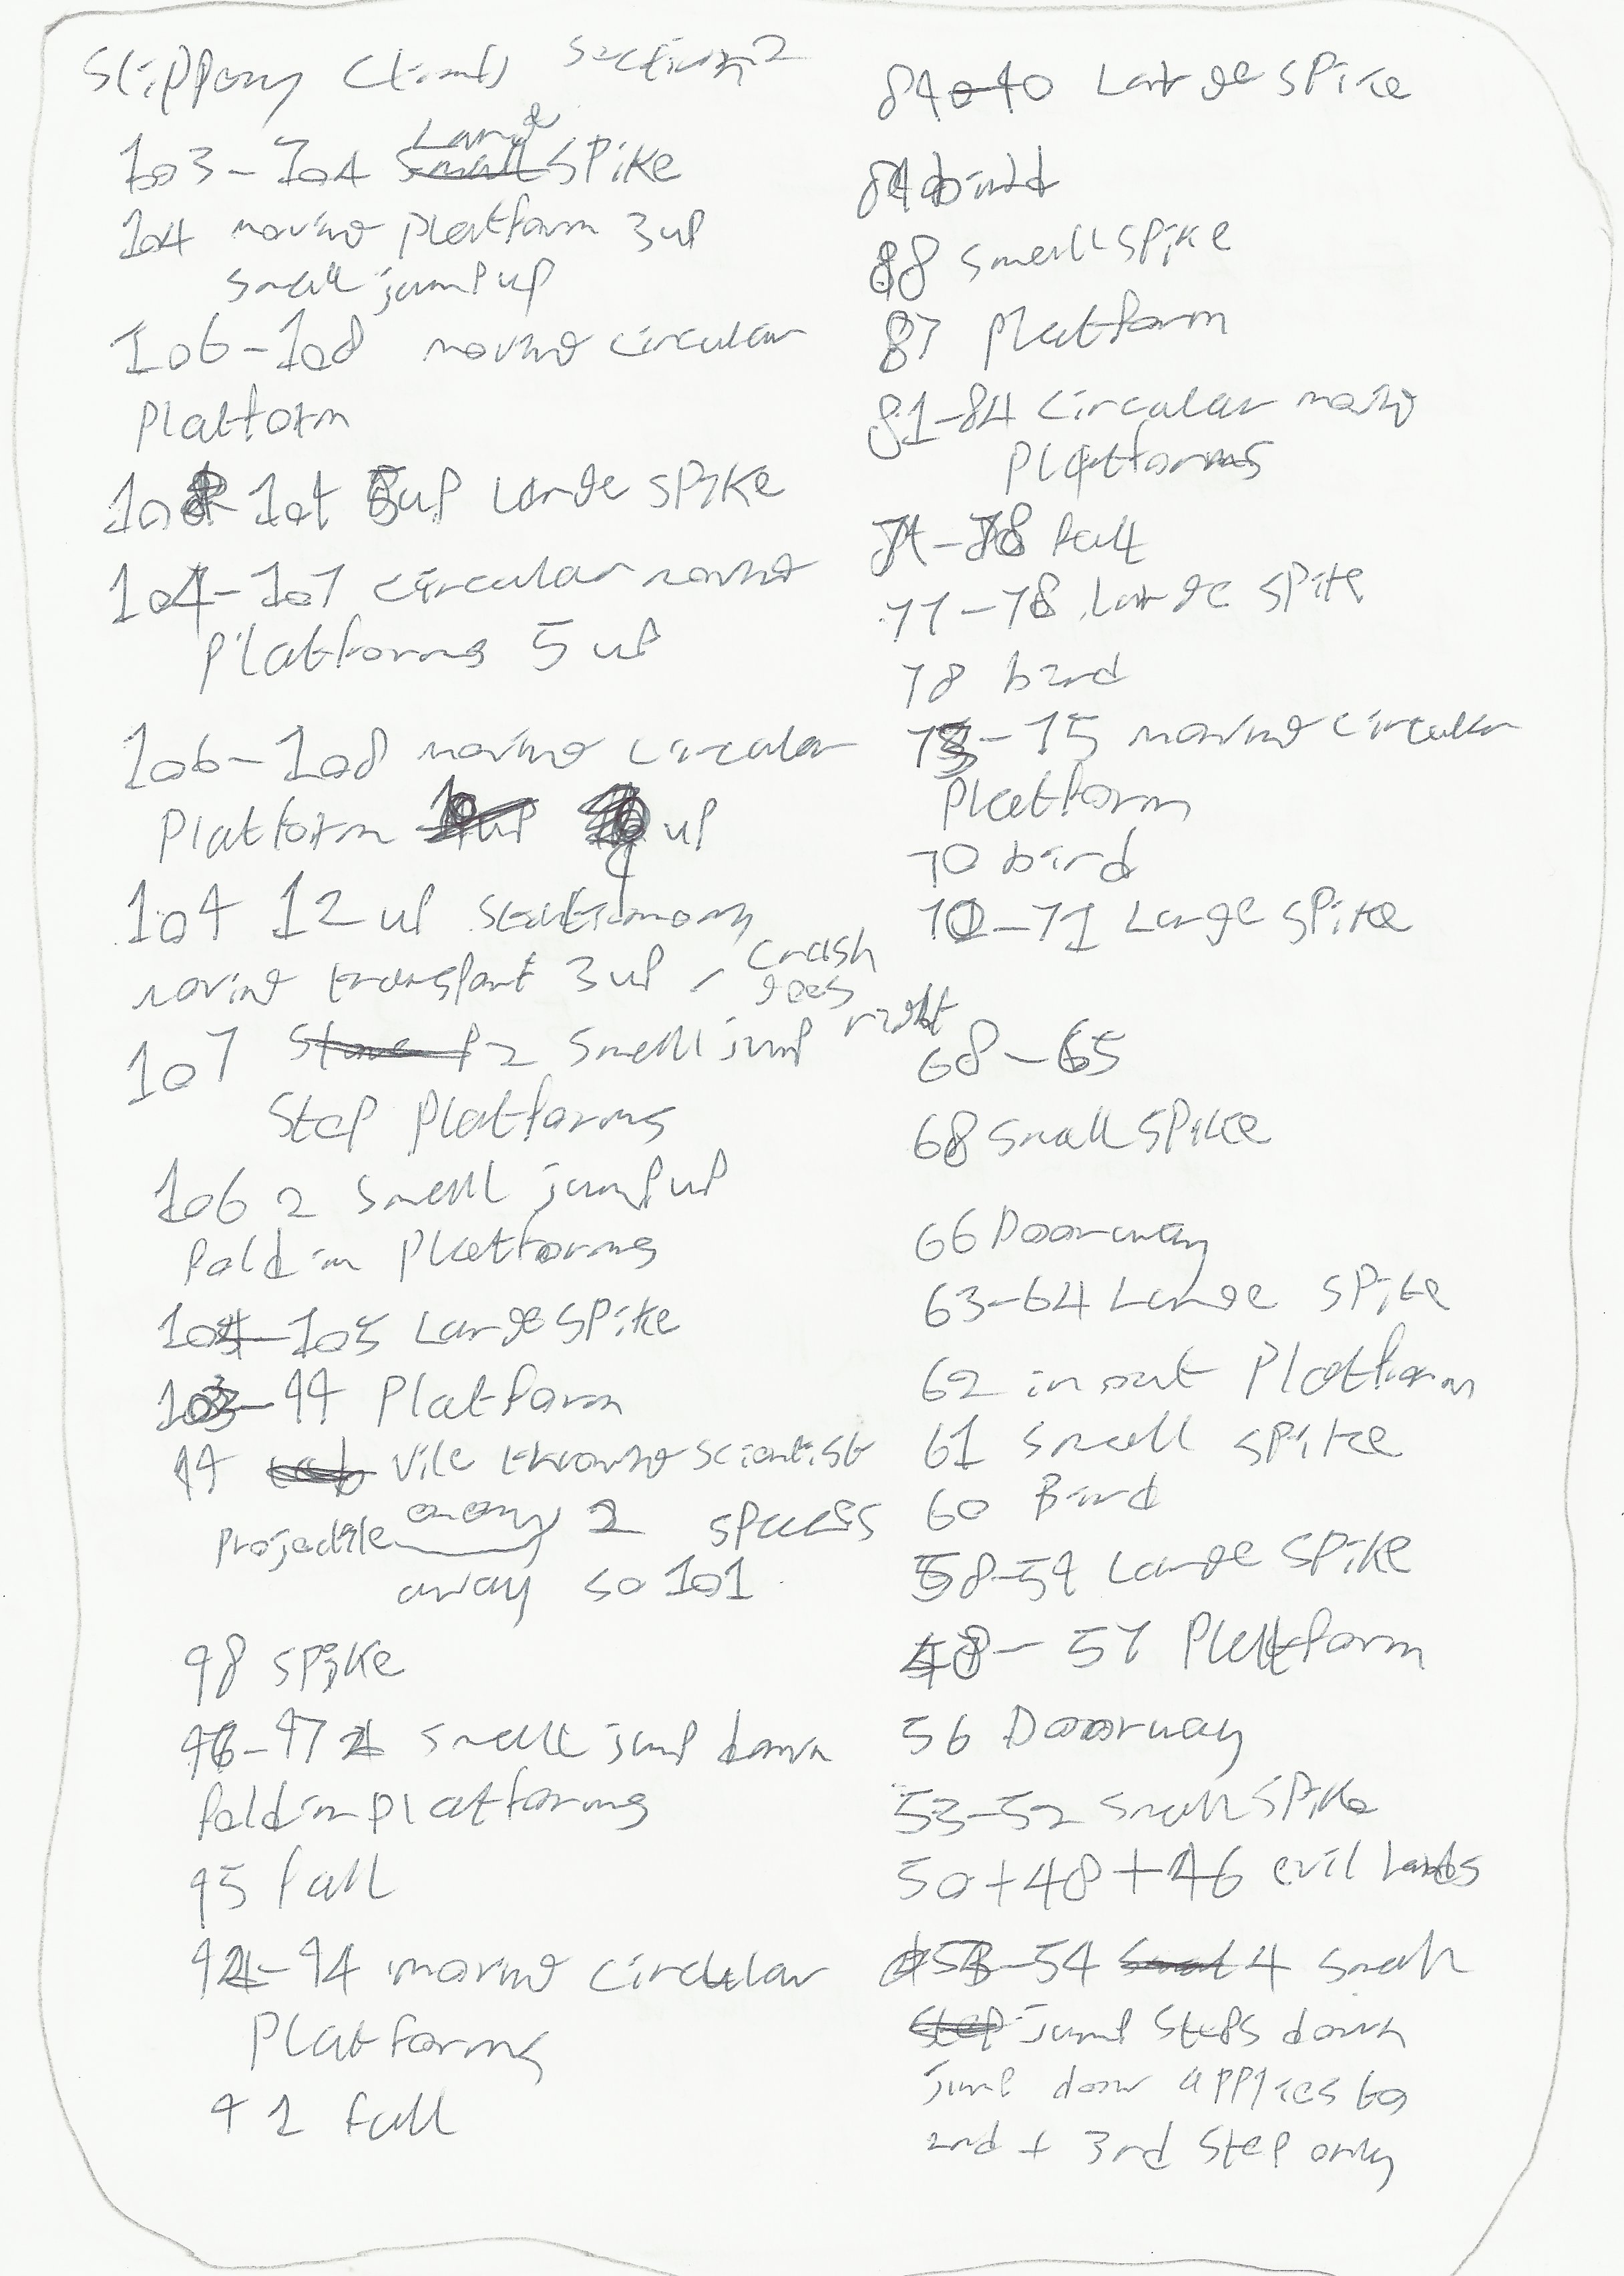 Slippery Climb section 2
103-104 Large Spike
104 moving platform 3 up
small jump up
106-108 moving circular
Platform
5up Large spike
104-107 circular moving
Platforms 5 up
106-108 moving circular
Platform up
104 12 up stationary
moving transport 3 up / crash
goes
right
107 2 small jump
Step Platforms
106 2 small jump up
fold in platforms
105 Large spike
103-99 Platform
99 vile throwing scientist
Projectile enemy 2 spaces
away so 101
98 spike
96-97 2 small jump down
fold in platforms
95 fall
92-94 moving circular
Platforms
91 fall
Large spike
bird
88 small spike
87 Platform
81-84 circular moving
Platforms
fall
77-78 Large spike
78 bird
73-75 moving circular
Platform
70 bird
70-71 Large spike
68-65
68 small spike
66 Doorway
63-64 Large spike
62 in out Platform
61 small spike
60 Bird
58-59 Large spike
48-57 Platform
56 Doorway
53-52 small spike
50+48+46 evil labs
53-54 4 small
jump steps down
jump down applies to
2nd + 3rd step only